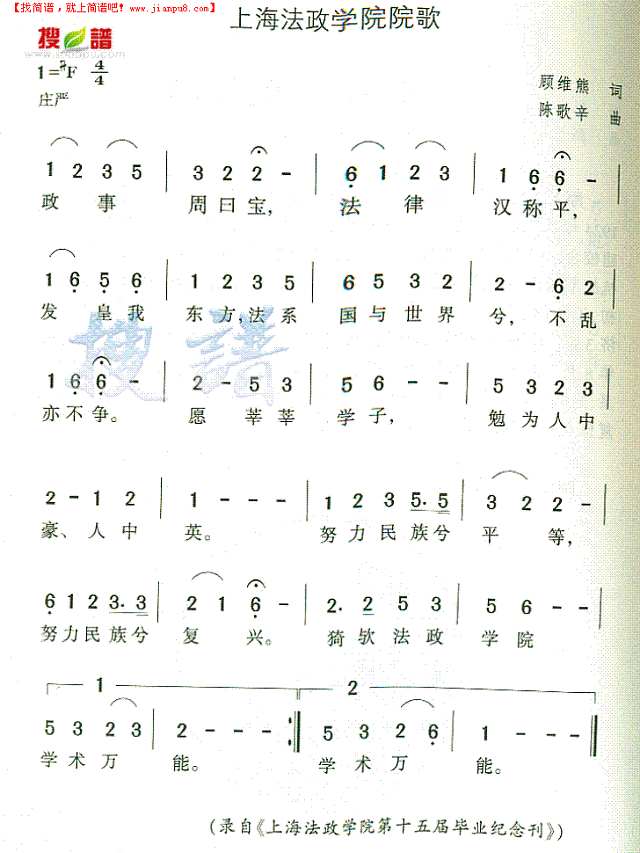 【找简谱，就上简谱吧！www.jianpu8.com】
上海法政学院院歌
搜谱
1=♭F 4/4
顾维熊 词
庄严
陈歌辛 曲
1 2 3 5 | 3 2 2 - | 6 1 2 3 | 1 6 6 - |
政 事 周曰宝， 法 律 汉称平，
1 6 5 6 | 1 2 3 5 | 6 5 3 2 | 2 - 6 2 |
发 皇我 东方，法系 国与世界 兮，不乱
1 6 6 - | 2 - 5 3 | 5 6 - - | 5 3 2 3 |
亦不争。 愿 莘莘 学子， 勉为人中
2 - 1 2 | 1 - - - | 1 2 3 5. 5 | 3 2 2 - |
豪、人中 英。 努力民族兮 平 等，
6 1 2 3. 3 | 2 1 6 - | 2. 2 5 3 | 5 6 - - |
努力民族兮 复 兴。 猗欤法政 学院
1 2
5 3 2 3 | 2 - - - :| 5 3 2 6 | 1 - - - ‖
学术万 能。 学术万 能。
(录自《上海法政学院第十五届毕业纪念刊》)